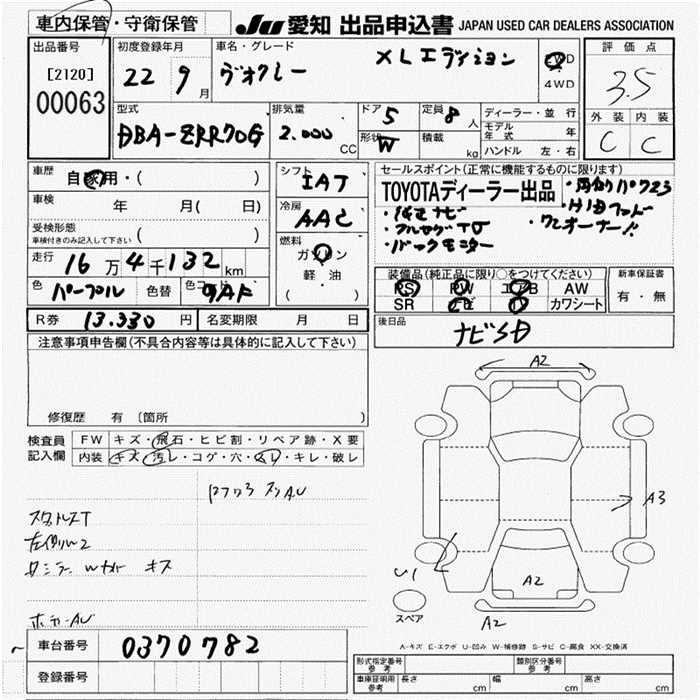 車内保管・守衛保管
JU 愛知 出品申込書 JAPAN USED CAR DEALERS ASSOCIATION
出品番号
[2120]
00063
初度登録年月
22 9月
車名・グレード
ヴォクシー XLエディション
2WD
・
4WD
評価点
3.5
外装 内装
C C
型式
DBA-ZRR70G
排気量
2.000 CC
ドア 5
定員 8人
形状 W
積載 kg
ディーラー・並行
モデル年式 年
ハンドル 左・右
車歴
自家用・( )
車検
年 月( 日)
受検形態
車検付きのみ記入して下さい ( )
走行 16万4千132km
色 パープル 色替 色コード 9AF
シフト
IAT
冷房
AAC
燃料
ガソリン
軽・油
( )
セールスポイント(正常に機能するものに限ります)
TOYOTAディーラー出品
・両側パワスラ
・HIDランド
・純正ナビ
・フルセグTV
・ワンオーナー!!
・バックモニター
装備品(純正品に限り○をつけてください)
PS PW エアB AW
SR ナビ カワシート
新車保証書
有・無
後日品
ナビSD
R券 13.330円 名変期限 月 日
注意事項申告欄(不具合内容等は具体的に記入して下さい)
修復歴 有 〔箇所 〕
検査員記入欄
FW キズ・飛石・ヒビ割・リペア跡・X要
内装 キズ・汚レ・コゲ・穴・スレ・キレ・破レ
A2
A3
A2
U1
A2
スペア
A-キズ E-エクボ U-凹み W-補修跡 S-サビ C-腐食 XX-交換済
車台番号 0370782
登録番号
形式指定番号 参考
類別区分番号 参考
車庫証明用 参考 長さ cm 幅 cm 高さ cm